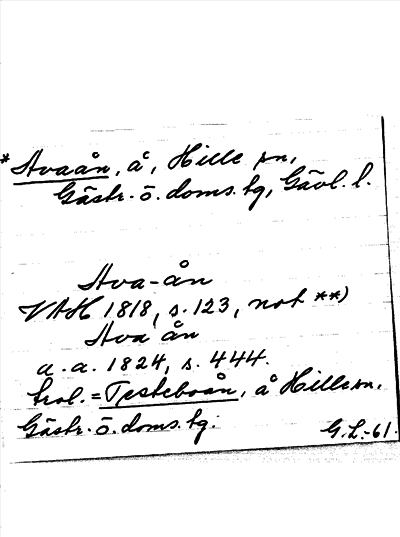 * Avaån, å, Hille sn,
Gästr. ö. doms. tg, Gävl. l.
Ava-ån
VAH 1818, s. 123, not **)
Ava ån
a. a. 1824, s. 444.
trol. = Testeboån, å Hille sn,
Gästr. ö. doms. tg.
G. L. -61.